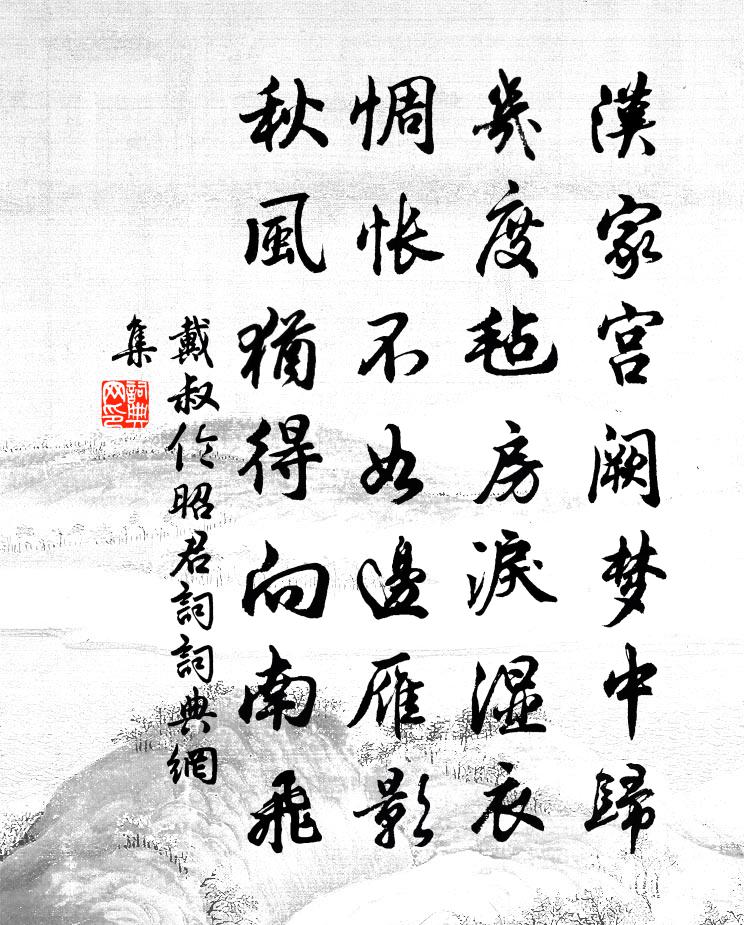 漢家宫阙梦中歸
幾度毡房淚湿衣
惆怅不如邊雁影
秋風猶得向南飛
戴叔伦昭君詞詞典網
集
詞典
网印